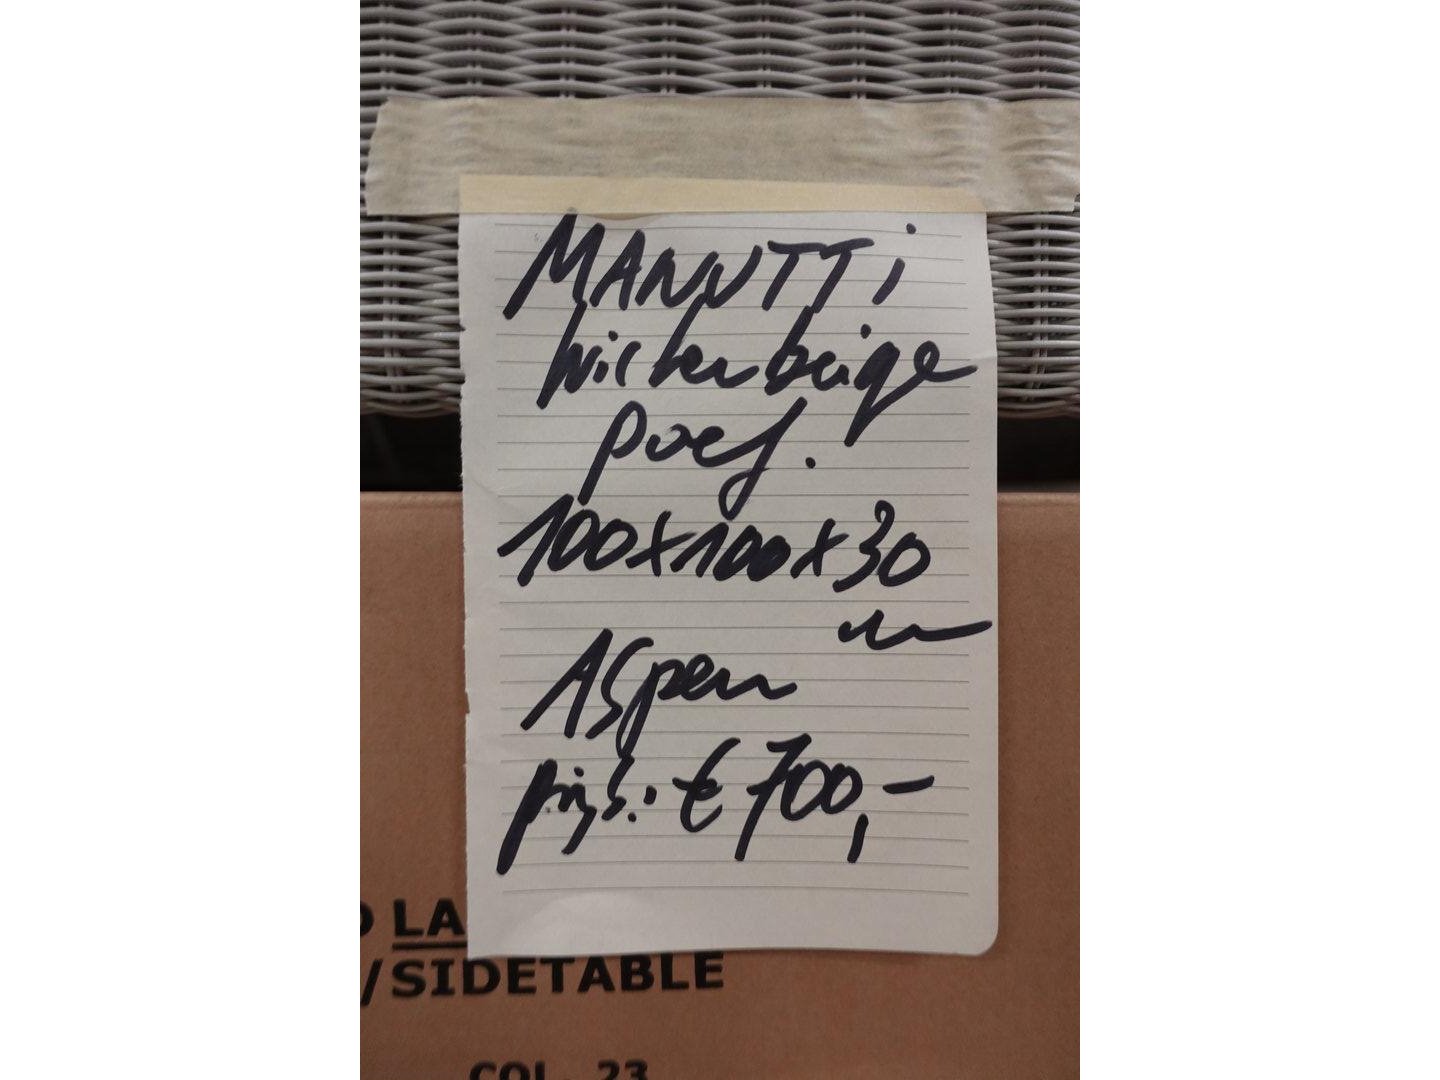 MANUTTi
wicker beige
poef.
100x100x30
Aspen
prijs: € 700,-
LA
/SIDETABLE
COL. 23